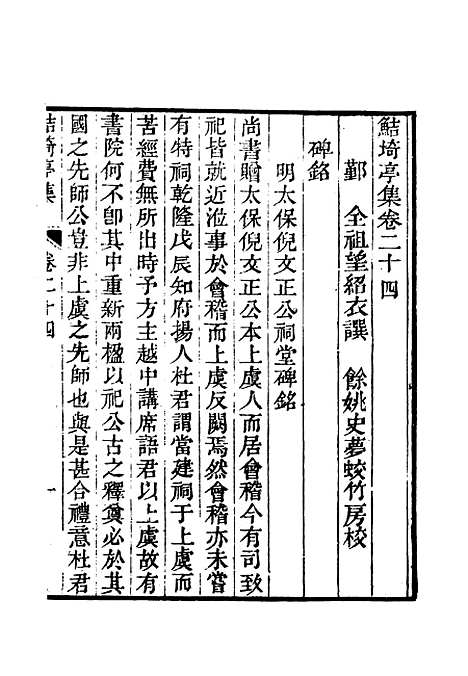 鮚埼亭集卷二十四
鄞 全祖望紹衣譔 餘姚史夢蛟竹房校
碑銘
明太保倪文正公祠堂碑銘
尚書贈太保倪文正公本上虞人而居會稽今有司致
祀皆就近涖事於會稽而上虞反闕焉然會稽亦未嘗
有特祠乾隆戊辰知府揚人杜君謂當建祠于上虞而
苦經費無所出時予方主越中講席語君以上虞故有
書院何不卽其中重新兩楹以祀公古之釋奠必於其
國之先師公豈非上虞之先師也與是甚合禮意杜君
鮚埼亭集 卷二十四 一